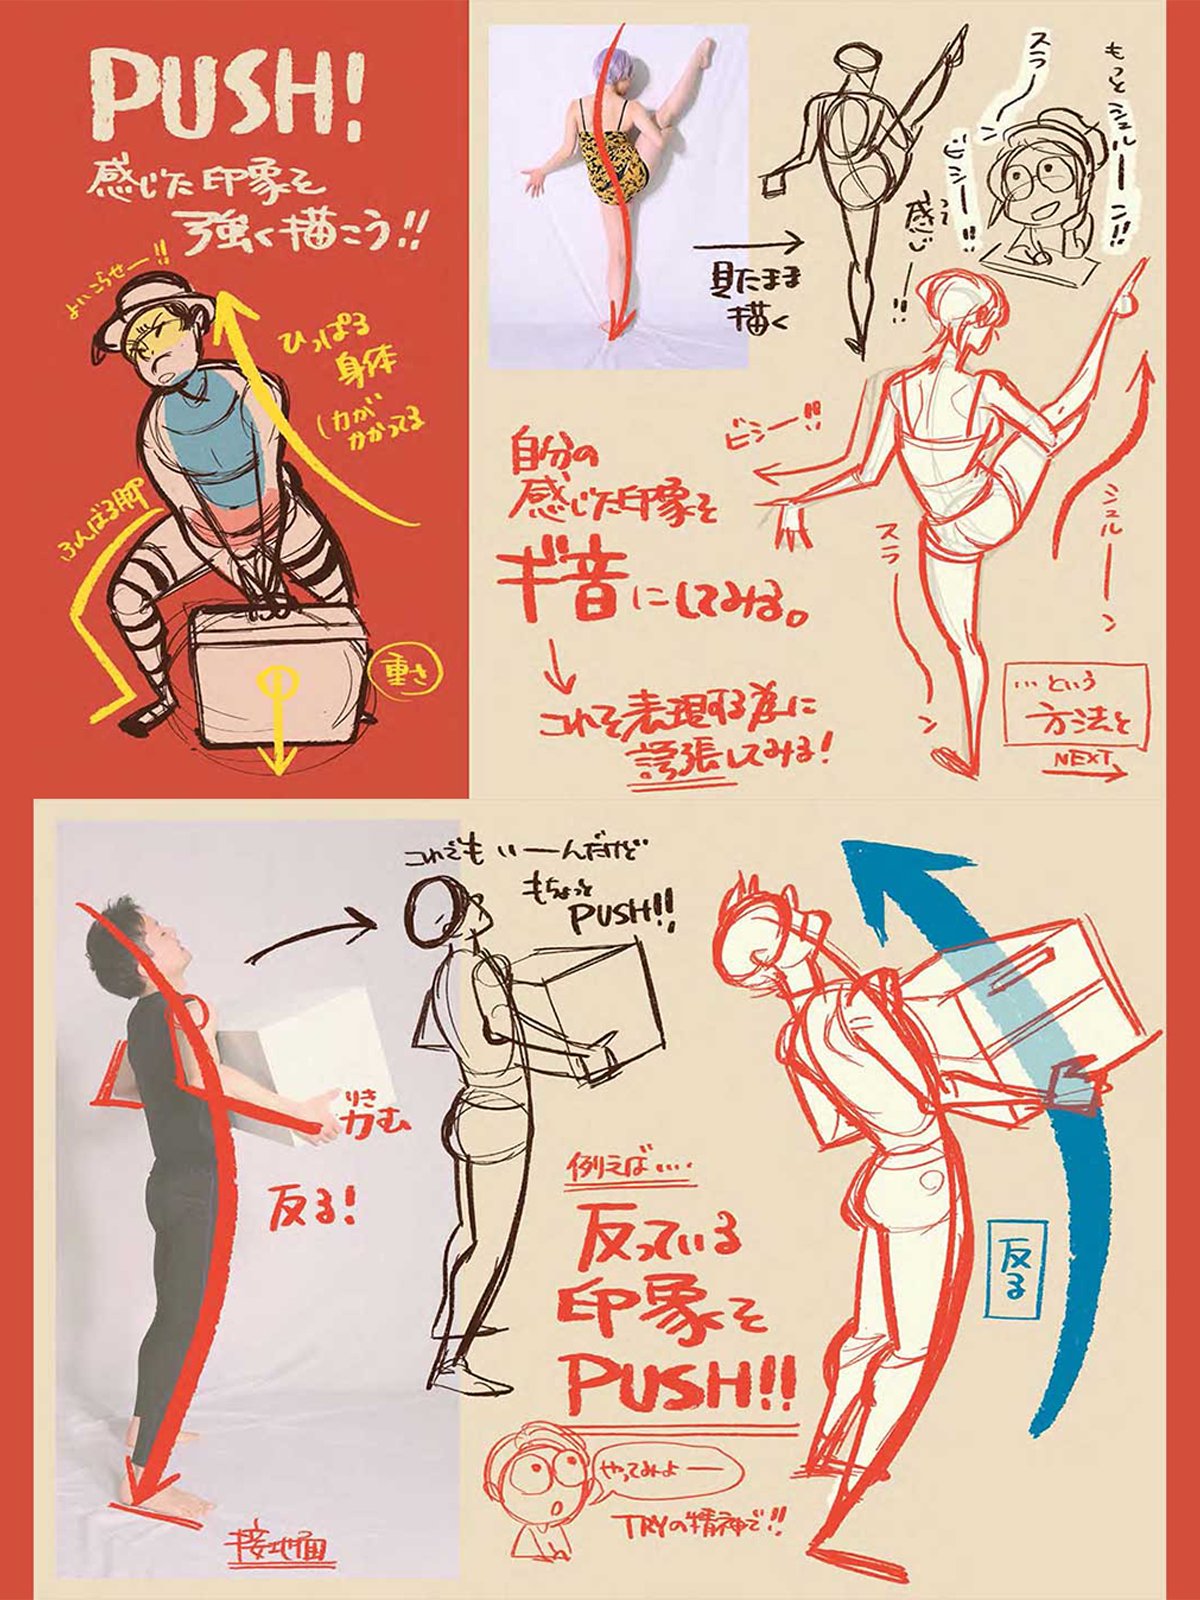 PUSH!
感じた印象を
強く描こう!!
よいこらせー!!
ひっぱる
身体
(力が
かかってる
ふんばる脚
重さ
見たまま
描く
もっとシュルーーン!!
スラーッ
ビシー!!
って
感じー!!
自分の
感じた印象を
ギ音にしてみる。
これを表現する為に
誇張してみる!
ビシー!!
スラーーン
シュルーーン
…という
方法を
NEXT
これでもいーんだけど
もちょっと
PUSH!!
りき
力む
反る!
接地面
例えば….
反っている
印象を
PUSH!!
反る
やってみよー
TRYの精神で!!